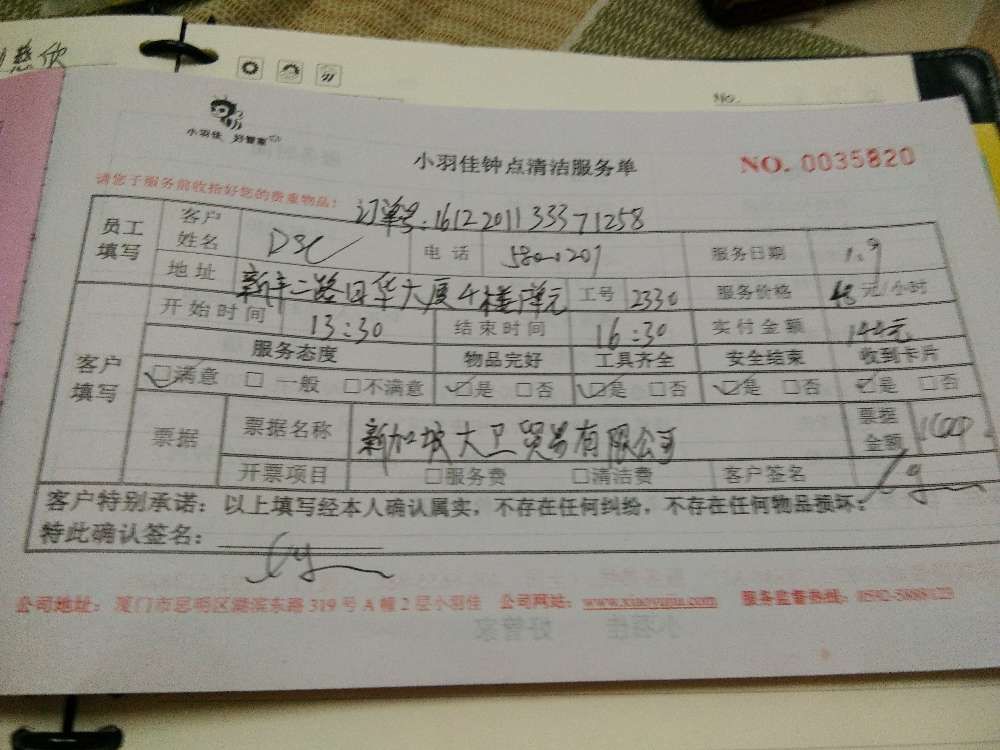 慈欣
No.
小羽佳 好管家
小羽佳钟点清洁服务单 NO. 0035820
请您于服务前收拾好您的贵重物品!
订单号:16122011 33371258
员工填写 客户姓名 DSC 电话 服务日期 1.9
地址 新丰三路日华大厦4楼 单元 工号 2330 服务价格 48元/小时
客户填写 开始时间 13:30 结束时间 16:30 实付金额 144元
服务态度 物品完好 工具齐全 安全结束 收到卡片
☑满意 □一般 □不满意 ☑是 □否 ☑是 □否 ☑是 □否 ☑是 □否
票据 票据名称 新加坡大卫贸易有限公司 票据金额 1000
开票项目 □服务费 □清洁费 客户签名
客户特别承诺:以上填写经本人确认属实,不存在任何纠纷,不存在任何物品损坏。
特此确认签名:
公司地址:厦门市思明区湖滨东路319号A幢2层小羽佳 公司网站:www.xiaoyujia.com 服务监督热线:0592-5888123